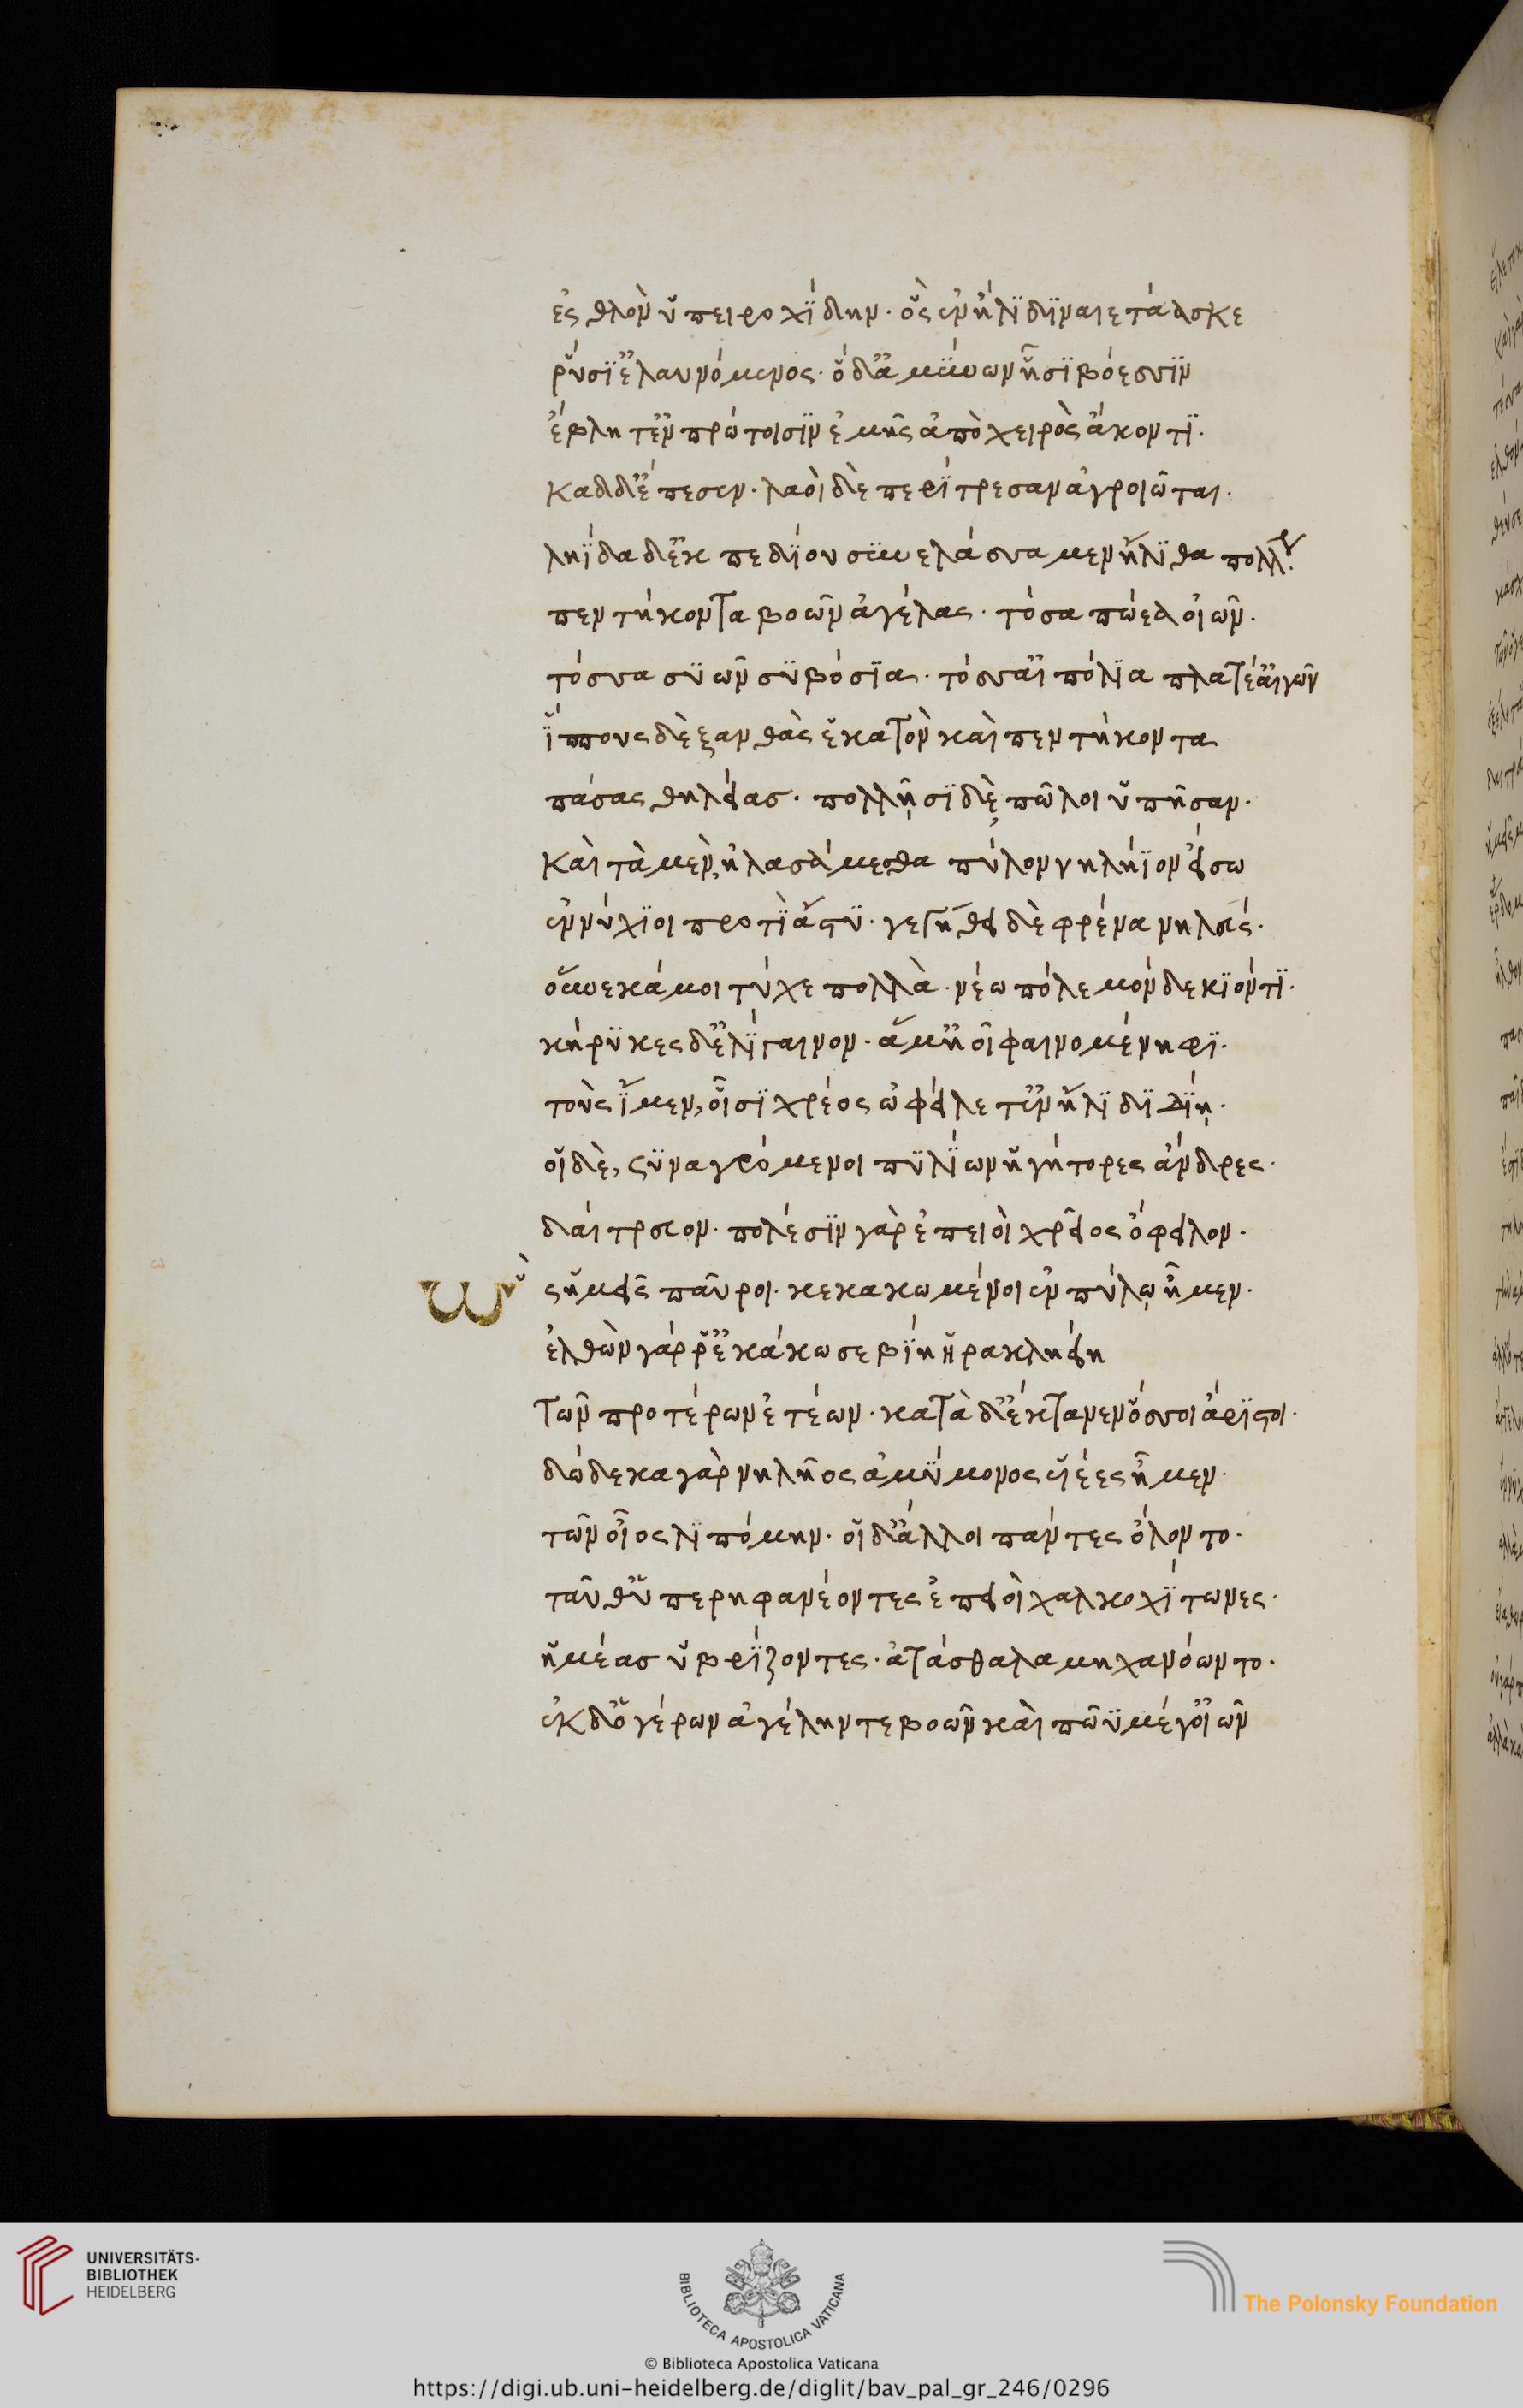 ἐσθλὸν ὑπειροχίδην· ὃς ἐν ἤλιδι ναιετάασκε
ῥύσι ἐλαυνόμενος· ὁ δ' ἀμύνων ᾗσι βόεσσιν
ἔβλητ' ἐν πρώτοισιν ἐμῆς ἀπὸ χειρὸς ἄκοντι·
καδδ' ἔπεσεν· λαοὶ δὲ περίτρεσαν ἀγροιῶται·
ληΐδα δ' ἐκ πεδίου συνελάσσαμεν ἤλιθα πολλήν·
πεντήκοντα βοῶν ἀγέλας· τόσα πώεα οἰῶν·
τόσσα συῶν συβόσια· τόσσ' αἰπόλια πλατέ' αἰγῶν
ἵππους δὲ ξανθὰς ἑκατὸν καὶ πεντήκοντα
πάσας θηλείας· πολλῇσι δὲ πῶλοι ὑπῆσαν·
καὶ τὰ μὲν ἠλασάμεσθα πύλον νηλήϊον εἴσω
ἐννύχιοι προτὶ ἄστυ· γεγήθει δὲ φρένα νηλεύς·
οὕνεκά μοι τύχε πολλὰ· νέω πόλεμον δὲ κιόντι·
κήρυκες δ' ἐλίγαινον· ἅμ' ἠοῖ φαινομένηφι·
τοὺς ἴμεν, οἷσι χρέος ὠφείλετ' ἐν ἤλιδι δίῃ·
οἱ δὲ, συναγρόμενοι πυλίων ἡγήτορες ἄνδρες·
δαίτρευον· πολέσιν γὰρ ἐπειοὶ χρεῖος ὄφειλον·
ὡς ἡμεῖς παῦροι· κεκακωμένοι ἐν πύλῳ ἦμεν·
ἐλθὼν γάρ ῥ' ἐκάκωσε βίη ἡρακληείη
τῶν προτέρων ἐτέων· κατὰ δ' ἔκταμεν ὅσσοι ἄριστοι·
δώδεκα γὰρ νηλῆος ἀμύμονος υἱέες ἦμεν·
τῶν οἶος λιπόμην· οἱ δ' ἄλλοι πάντες ὄλοντο·
ταῦθ' ὑπερηφανέοντες ἐπειοὶ χαλκοχίτωνες·
ἡμέας ὑβρίζοντες· ἀτάσθαλα μηχανόωντο·
ἐκ δ' ὁ γέρων ἀγέλην τε βοῶν καὶ πῶϋ μέγ' οἰῶν
UNIVERSITÄTS-
BIBLIOTHEK
HEIDELBERG
BIBLIOTECA APOSTOLICA VATICANA
© Biblioteca Apostolica Vaticana
The Polonsky Foundation
https://digi.ub.uni-heidelberg.de/diglit/bav_pal_gr_246/0296